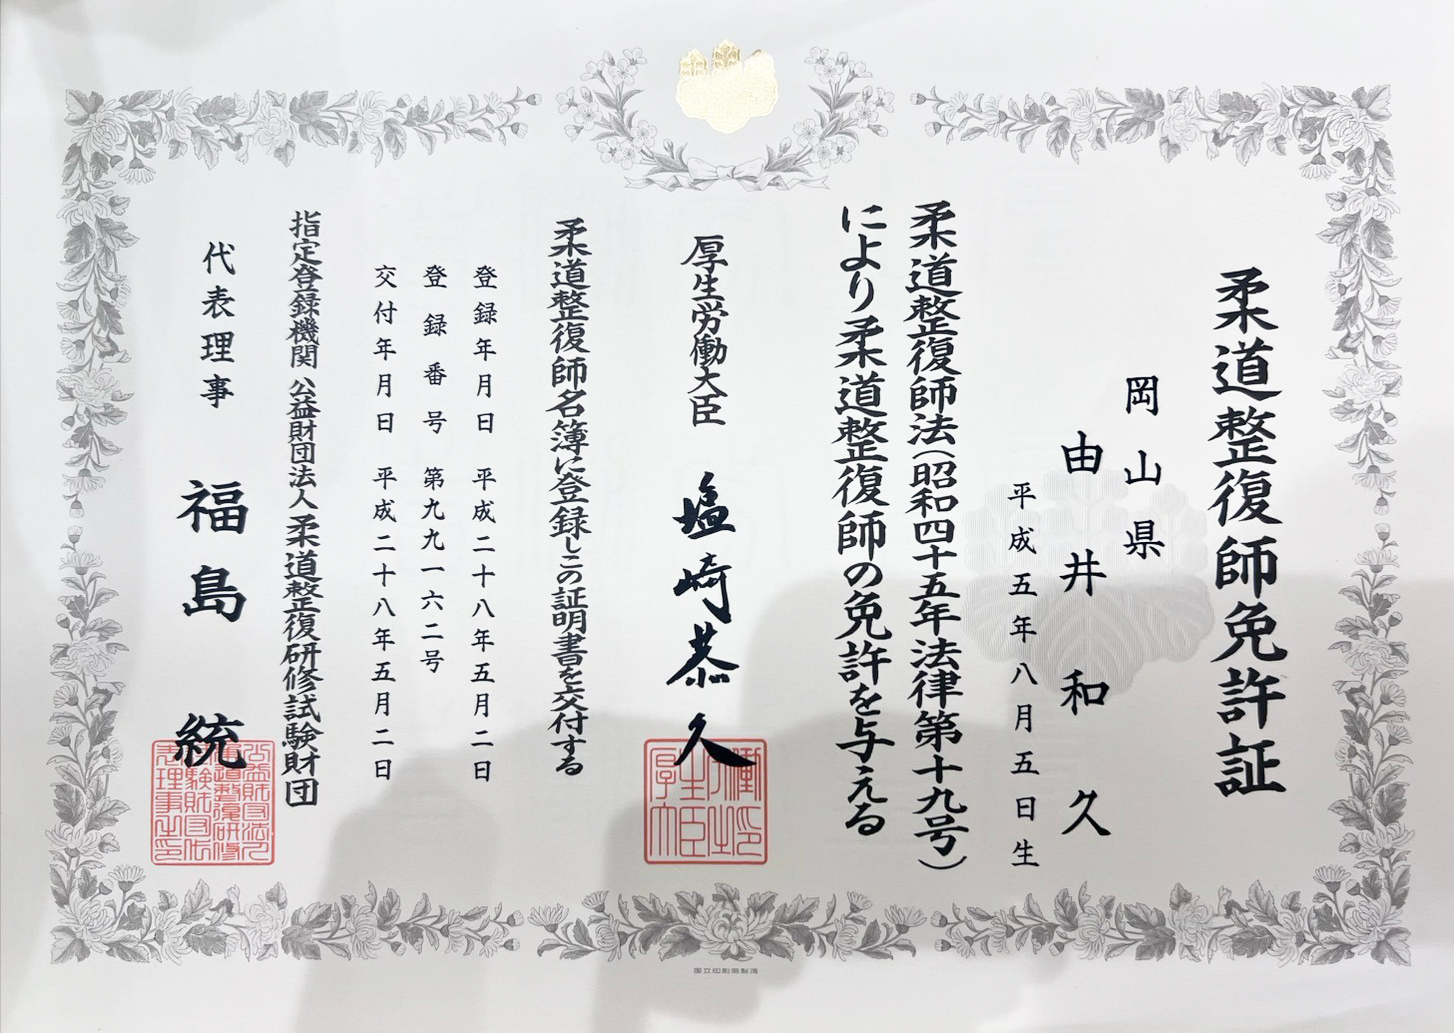 柔道整復師免許証
岡山県
由井和久
平成五年八月五日生
柔道整復師法(昭和四十五年法律第十九号)
により柔道整復師の免許を与える
厚生労働大臣 塩崎恭久
柔道整復師名簿に登録しこの証明書を交付する
登録年月日 平成二十八年五月二日
登録番号 第九九一六二号
交付年月日 平成二十八年五月二日
指定登録機関 公益財団法人柔道整復研修試験財団
代表理事 福島統
国立印刷局製造